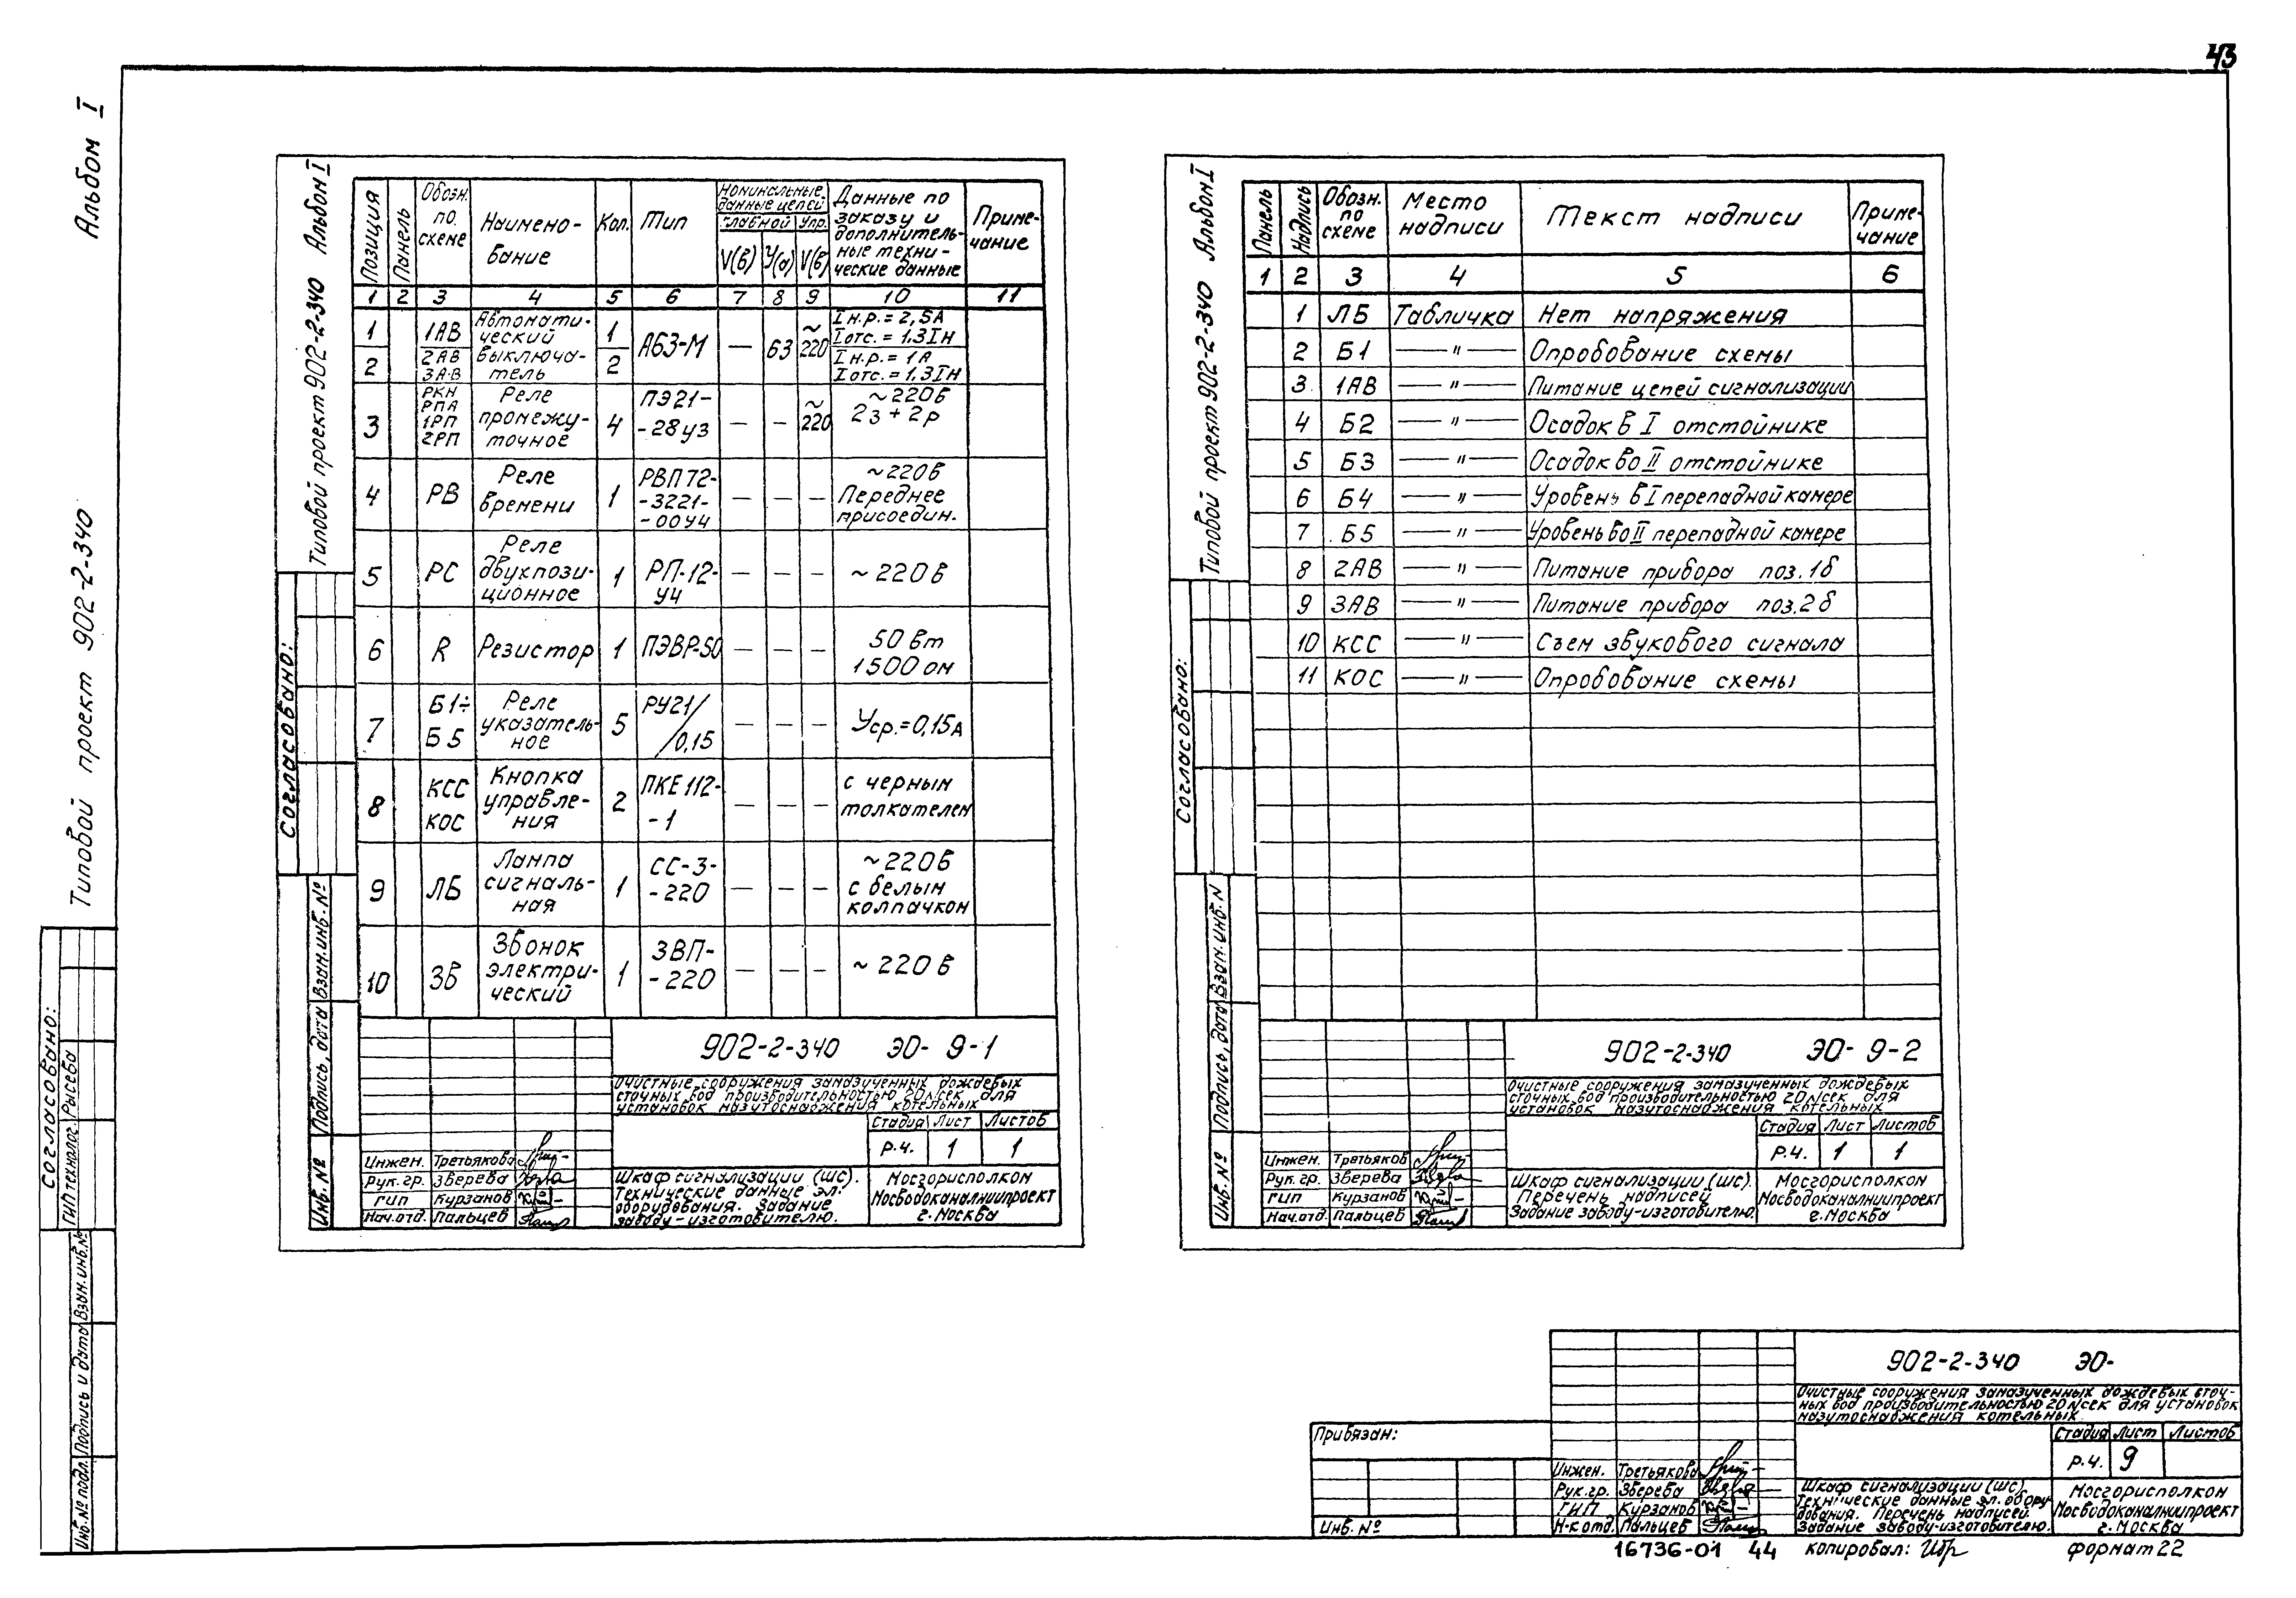 43
Альбом I
Типовой проект 902-2-340
Согласовано:
ГИП технолог. Рысева
Инв.№ подл. Подпись и дата Взам.инв.№
Типовой проект 902-2-340 Альбом I
Согласовано:
Инв. № Подпись, дата Взам.инв.№
Позиция Панель Обозн. по схеме Наименование Кол. Тип Номинальные данные цепей Данные по заказу и дополнительные технические данные Примечание
главной Упр.
V(в) У(а) V(в)
1 2 3 4 5 6 7 8 9 10 11
1 1АВ Автоматический выключатель 1 А63-М — 63 ~220 Iн.р.=2,5А Iотс.=1.3Iн
2 2АВ 3АВ 2 Iн.р.=1А Iотс.=1,3Iн
3 РКН РПА 1РП 2РП Реле промежуточное 4 ПЭ21--28у3 — — ~220 ~220в 2з+2р
4 РВ Реле времени 1 РВП72--3221--00У4 — — — ~220в Переднее присоедин.
5 РС Реле двухпозиционное 1 РП-12-У4 — — — ~220в
6 R Резистор 1 ПЭВР-50 — — — 50 вт 1500 ом
7 Б1÷Б5 Реле указательное 5 РУ21/0,15 — — — Уср.=0,15А
8 КСС КОС Кнопка управления 2 ПКЕ 112--1 — — — с черным толкателем
9 ЛБ Лампа сигнальная 1 СС-3--220 — — — ~220в с белым колпачком
10 ЗВ Звонок электрический 1 ЗВП--220 — — — ~220в
902-2-340 ЭО- 9-1
Очистные сооружения замазученных дождевых
сточных вод производительностью 20л/сек для
установок мазутоснабжения котельных
Стадия Лист Листов
Р.ч. 1 1
Инжен. Третьякова
Рук.гр. Зверева
ГИП Курзанов
Нач.отд. Пальцев
Шкаф сигнализации (шс).
Технические данные эл.
оборудования. Задание
заводу-изготовителю.
Мосгорисполком
Мосводоканалниипроект
г.Москва
Типовой проект 902-2-340 Альбом I
Согласовано:
Инв. № Подпись, дата Взам.инв.N
Панель Надпись Обозн. по схеме Место надписи Текст надписи Примечание
1 2 3 4 5 6
1 ЛБ Табличка Нет напряжения
2 Б1 —"— Опробование схемы
3 1АВ —"— Питание цепей сигнализации
4 Б2 —"— Осадок в I отстойнике
5 Б3 —"— Осадок во II отстойнике
6 Б4 —"— Уровень в I перепадной камере
7 Б5 —"— Уровень во II перепадной камере
8 2АВ —"— Питание прибора поз.1б
9 3АВ —"— Питание прибора поз.2б
10 КСС —"— Съем звукового сигнала
11 КОС —"— Опробование схемы
902-2-340 ЭО- 9-2
Очистные сооружения замазученных дождевых
сточных вод производительностью 20л/сек для
установок мазутоснабжения котельных
Стадия Лист Листов
Р.ч. 1 1
Инжен. Третьяков
Рук.гр. Зверева
ГИП Курзанов
Нач.отд. Пальцев
Шкаф сигнализации (шс).
Перечень надписей
Задание заводу-изготовителю.
Мосгорисполком
Мосводоканалниипроект
г.Москва
902-2-340 ЭО-
Очистные сооружения замазученных дождевых сточ-
ных вод производительностью 20л/сек для установок
мазутоснабжения котельных
Привязан:
Инв.№
Стадия Лист Листов
Р.ч. 9
Инжен. Третьякова
Рук.гр. Зверева
ГИП Курзанов
Н-к отд. Пальцев
Шкаф сигнализации (шс)
Технические данные эл. обору-
дования. Перечень надписей.
Задание заводу-изготовителю.
Мосгорисполком
Мосводоканалниипроект
г.Москва
16736-01 44 копировал: формат 22